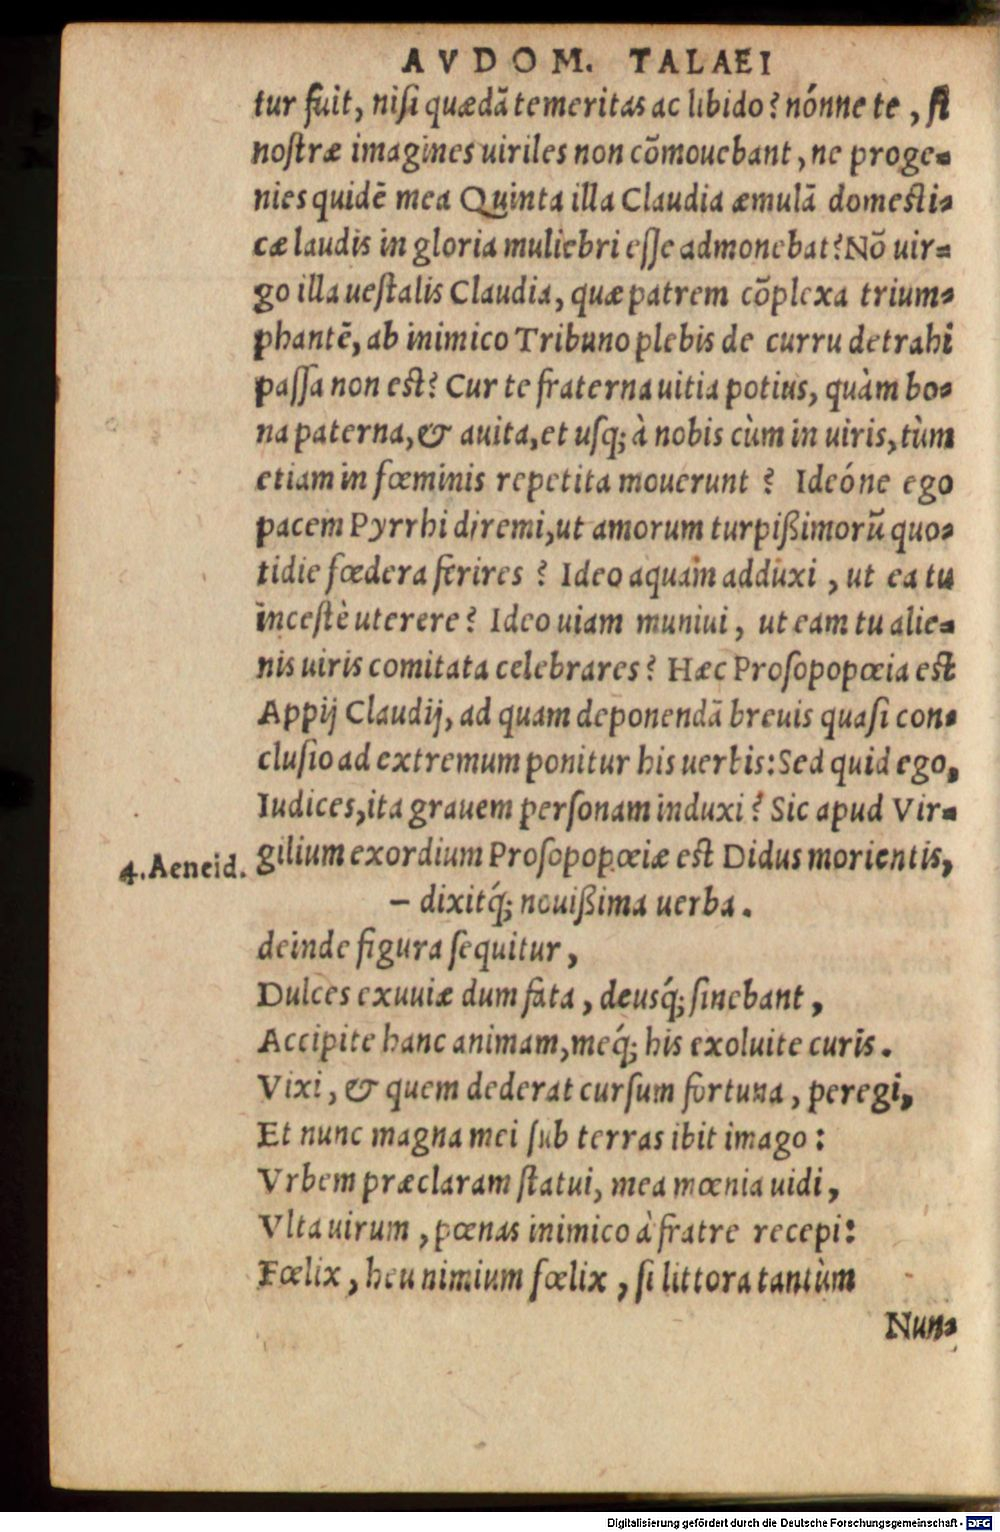 AVDOM. TALAEI
tur fuit, niſi quædã temeritas ac libido? nónne te, ſi
noſtræ imagines uiriles non cõmouebant, ne proge-
nies quidẽ mea Quinta illa Claudia æmulã domeſti-
cæ laudis in gloria muliebri eſſe admonebat? Nõ uir-
go illa ueſtalis Claudia, quæ patrem cõplexa trium-
phantẽ, ab inimico Tribuno plebis de curru detrahi
paſſa non eſt? Cur te fraterna uitia potius, quàm bo-
na paterna, & auita, et uſq; à nobis cùm in uiris, tùm
etiam in fœminis repetita mouerunt? Ideóne ego
pacem Pyrrhi diremi, ut amorum turpißimorũ quo-
tidie fœdera ferires? Ideo aquam adduxi, ut ea tu
inceſtè uterere? Ideo uiam muniui, ut eam tu alie-
nis uiris comitata celebrares? Hæc Proſopopœia eſt
Appij Claudij, ad quam deponendã breuis quaſi con-
cluſio ad extremum ponitur his uerbis: Sed quid ego,
Iudices, ita grauem perſonam induxi? Sic apud Vir-
4. Aeneid. gilium exordium Proſopopœiæ eſt Didus morientis,
– dixitq́; nouißima uerba.
deinde figura ſequitur,
Dulces exuuiæ dum fata, deusq́; ſinebant,
Accipite hanc animam, meq́; his exoluite curis.
Vixi, & quem dederat curſum fortuna, peregi,
Et nunc magna mei ſub terras ibit imago:
Vrbem præclaram ſtatui, mea mœnia uidi,
Vlta uirum, pœnas inimico à fratre recepi:
Fœlix, heu nimium fœlix, ſi littora tantùm
Nun-
Digitalisierung gefördert durch die Deutsche Forschungsgemeinschaft - DFG